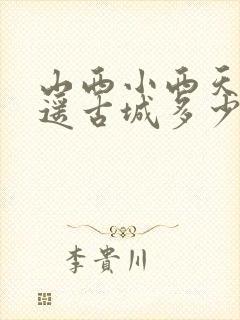 山西小西天
遥古城多少
李貴川